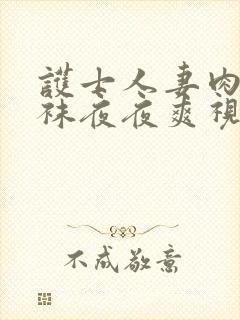 護士人妻肉
袜夜夜爽視
不成敬意